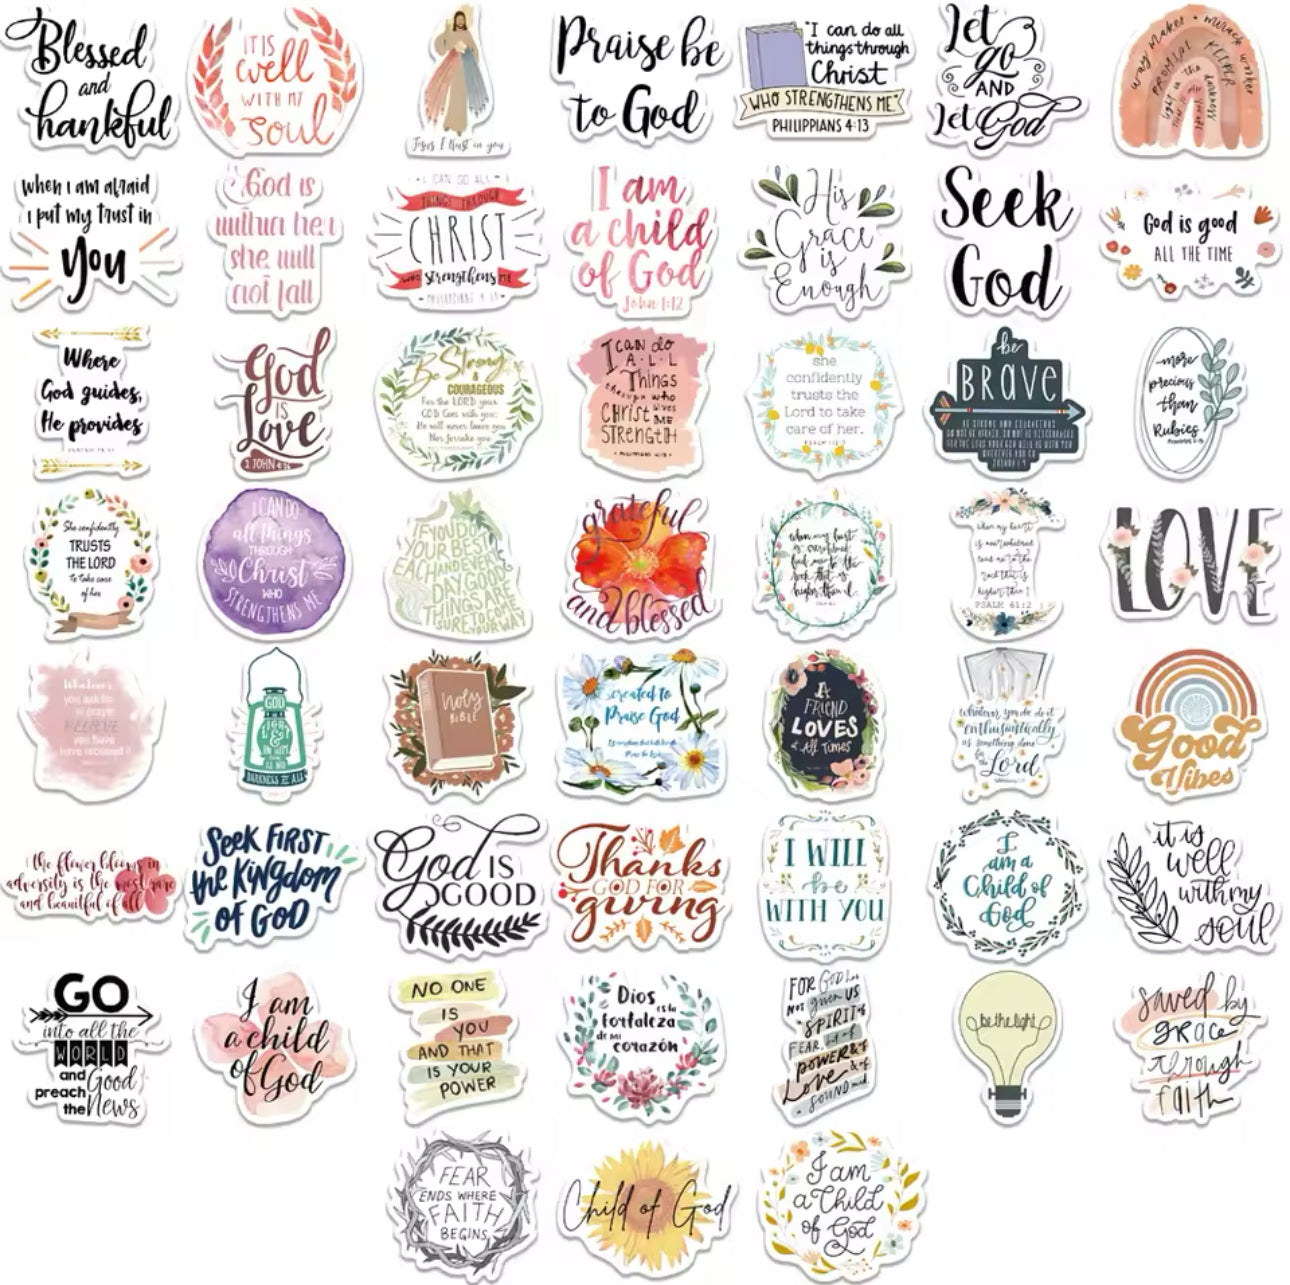 Blessed
and
hankful
IT IS
well
WITH MY
Soul
Jesus I trust in you
Praise be
to God
"I can do all
things through
Christ
WHO STRENGTHENS ME"
PHILIPPIANS 4:13
Let
go
AND
Let God
way maker • miracle worker
PROMISE KEEPER
light in the darkness
when i am afraid
i put my trust in
you
God is
within her
she will
not fall
I CAN DO ALL
THINGS THROUGH
CHRIST
WHO strengthens ME
PHILIPPIANS 4:13
I am
a child
of God
John 1:12
His
Grace
is
Enough
Seek
God
God is good
ALL THE TIME
Where
God guides,
He provides
God
IS
Love
1 JOHN 4:16
Be Strong
&
COURAGEOUS
For the LORD your
GOD Goes with you;
He will never leave you
Nor forsake you
I can do
A·L·L
Things
through who
Christ gives
ME
STRENGTH
she
confidently
trusts the
Lord to take
care of her.
be
BRAVE
BE STRONG AND COURAGEOUS
DO NOT BE AFRAID, DO NOT BE DISCOURAGED
FOR THE LORD YOUR GOD WILL BE WITH YOU
WHEREVER YOU GO
JOSHUA 1:9
more
precious
than
Rubies
She confidently
TRUSTS
THE LORD
to take care
of her
I CAN DO
all things
THROUGH
Christ
WHO
STRENGTHENS ME
IF YOU DO
YOUR BEST
EACH AND EVERY
DAY GOOD
THINGS ARE
SURE TO COME
YOUR WAY
grateful
and blessed
when my heart
is overwhelmed
lead me to the
rock that is
higher than I.
when my heart
is overwhelmed
lead me to the
rock that is
higher than I
PSALM 61:2
LOVE
Whatever
you ask for
in prayer
BELIEVE
you have
have received it
GOD
IS
LIGHT
&
IN HIM
THERE
IS NO
DARKNESS AT ALL
Holy
BIBLE
created to
Praise God
A
FRIEND
LOVES
at All Times
whatever you do do it
enthusiastically
as something done
for the Lord
Good
Vibes
the flower blooms in
adversity is the most rare
and beautiful of all
Seek FIRST
the KiNgdom
OF GOD
God IS
GOOD
Thanks
GOD FOR
giving
I WILL
be
WITH YOU
I
am a
Child of
God
it is
well
with my
soul
GO
into all the
WORLD
and
preach Good
the News
I am
a child
of God
NO ONE
IS
YOU
AND THAT
IS YOUR
POWER
Dios
es la
fortaleza
de mi
corazón
FOR GOD has
NOT given US
SPIRIT
FEAR, but of
POWER & of
Love & of
SOUND mind
be the light
saved by
grace
through
faith
FEAR
ENDS WHERE
FAITH
BEGINS
Child of God
I am
a Child
of God